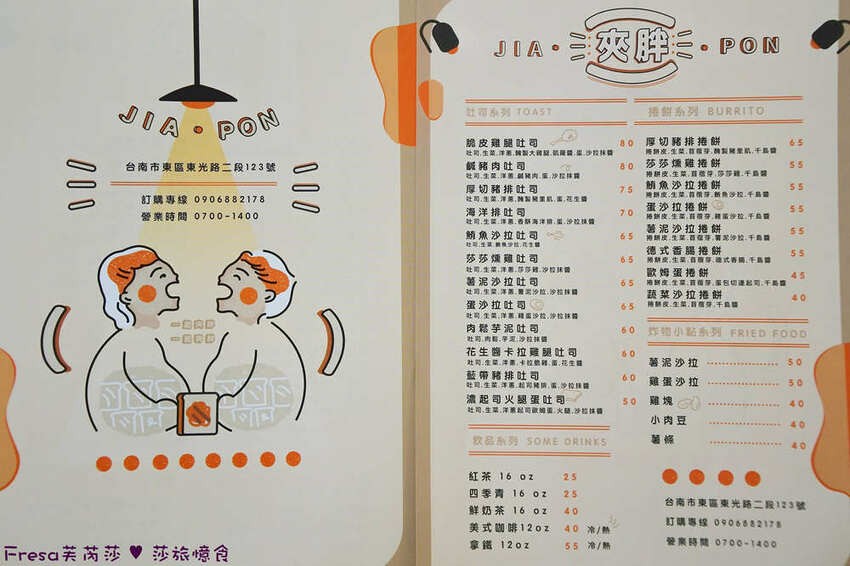 JIA • PON
台南市東區東光路二段123號
訂購專線 0906882178
營業時間 0700-1400
JIA • 夾胖 • PON
吐司系列 TOAST
脆皮雞腿吐司 80
鹹豬肉吐司 80
吐司,生菜,洋蔥,鹹豬肉,蛋,沙拉抹醬
厚切豬排吐司 75
吐司,生菜,洋蔥,醃製豬里肌,蛋,沙拉抹醬
海洋排吐司 70
吐司,生菜,洋蔥,香酥海洋排,蛋,沙拉抹醬
鮪魚沙拉吐司 65
吐司,生菜,鮪魚沙拉,花生醬
莎莎燻雞吐司 65
吐司,生菜,洋蔥,莎莎雞,沙拉抹醬
薯泥沙拉吐司 65
吐司,生菜,洋蔥,薯泥沙拉,沙拉抹醬
蛋沙拉吐司 65
吐司,生菜,洋蔥,雞蛋沙拉,沙拉抹醬
肉鬆芋泥吐司 60
吐司,肉鬆,芋泥,沙拉抹醬
花生醬卡拉雞腿吐司 60
吐司,生菜,洋蔥,卡拉脆雞,蛋,花生醬
藍帶豬排吐司 60
吐司,生菜,洋蔥,起司豬排,蛋,沙拉抹醬
濃起司火腿蛋吐司 60
吐司,生菜,洋蔥起司歐姆蛋,火腿,沙拉抹醬
飲品系列 SOME DRINKS
紅茶 16 oz 25
四季青 16 oz 25
鮮奶茶 16 oz 40
美式咖啡12oz 40 冷/熱
拿鐵 12oz 55 冷/熱
捲餅系列 BURRITO
厚切豬排捲餅 65
捲餅皮,生菜,苜蓿芽,醃製豬里肌,千島醬
莎莎燻雞捲餅 55
捲餅皮,生菜,苜蓿芽,莎莎雞,千島醬
鮪魚沙拉捲餅 55
捲餅皮,生菜,苜蓿芽,鮪魚沙拉,千島醬
蛋沙拉捲餅 55
捲餅皮,生菜,苜蓿芽,雞蛋沙拉,千島醬
薯泥沙拉捲餅 55
捲餅皮,生菜,苜蓿芽,薯泥沙拉,千島醬
德式香腸捲餅 55
捲餅皮,生菜,苜蓿芽,德式香腸,千島醬
歐姆蛋捲餅 45
捲餅皮,生菜,苜蓿芽,蛋包切達起司,千島醬
蔬菜沙拉捲餅 40
捲餅皮,生菜,洋蔥,苜蓿芽,千島醬
炸物小點系列 FRIED FOOD
薯泥沙拉 50
雞蛋沙拉 50
雞塊 40
小肉豆 40
薯條 40
台南市東區東光路二段123號
訂購專線 0906882178
營業時間 0700-1400
Fresa芙芮莎 ♥ 莎旅憶食